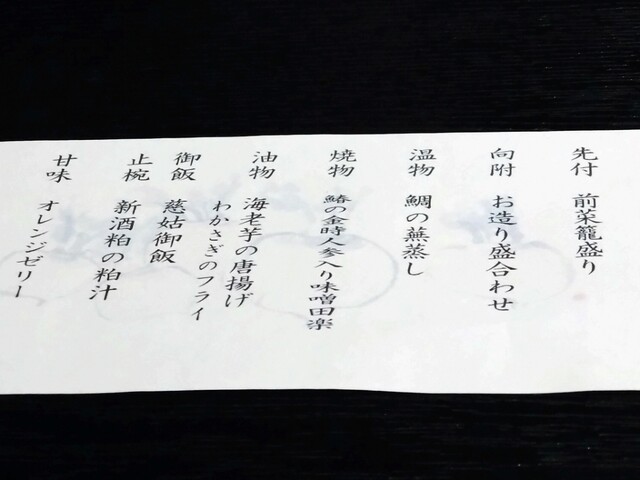 先付 前菜籠盛り
向附 お造り盛合わせ
温物 鯛の蕪蒸し
焼物 鰆の金時人参入り味噌田楽
油物 海老芋の唐揚げ
わかさぎのフライ
御飯 慈姑御飯
止椀 新酒粕の粕汁
甘味 オレンジゼリー